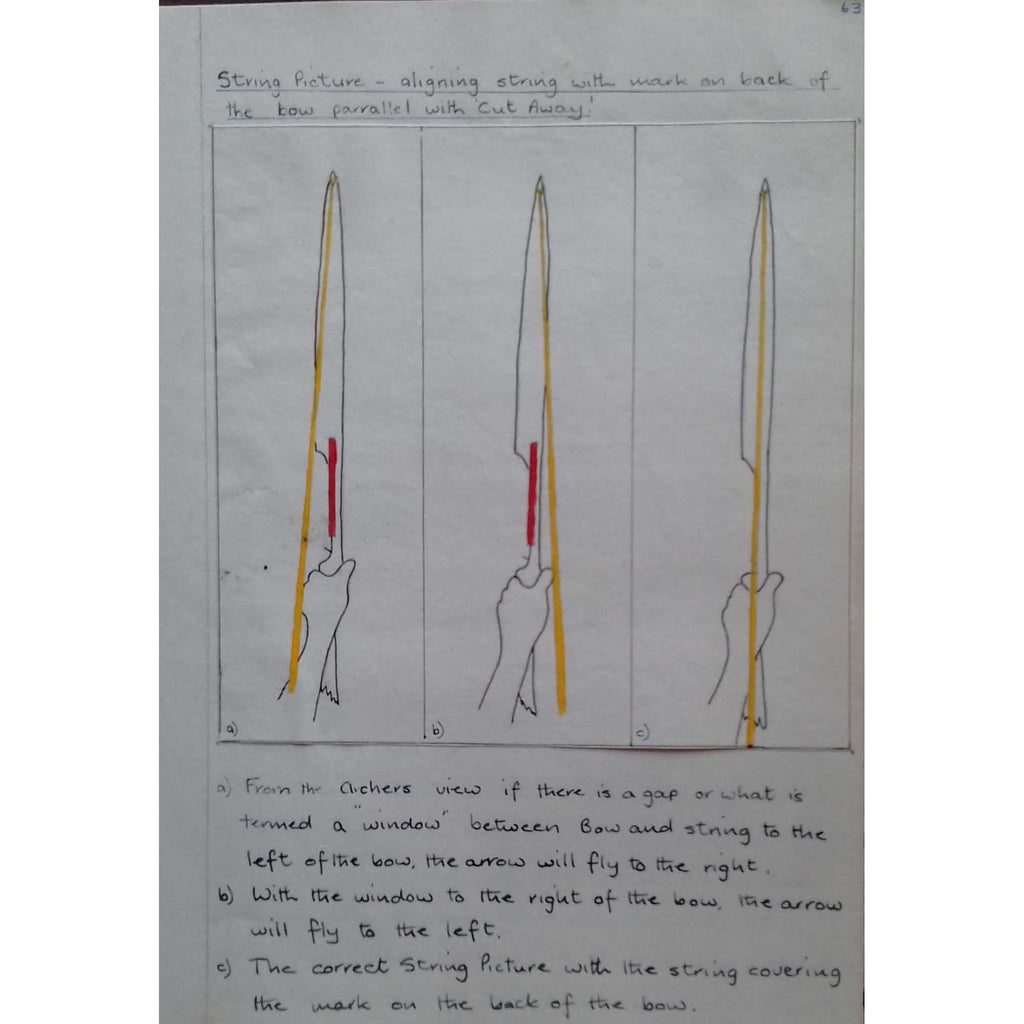 63
String Picture - aligning string with mark on back of
the bow parrallel with 'Cut Away'
a)
b)
c)
a) From the Archers view if there is a gap or what is
termed a "window" between Bow and string to the
left of the bow, the arrow will fly to the right.
b) With the window to the right of the bow, the arrow
will fly to the left.
c) The correct String Picture with the string covering
the mark on the back of the bow.